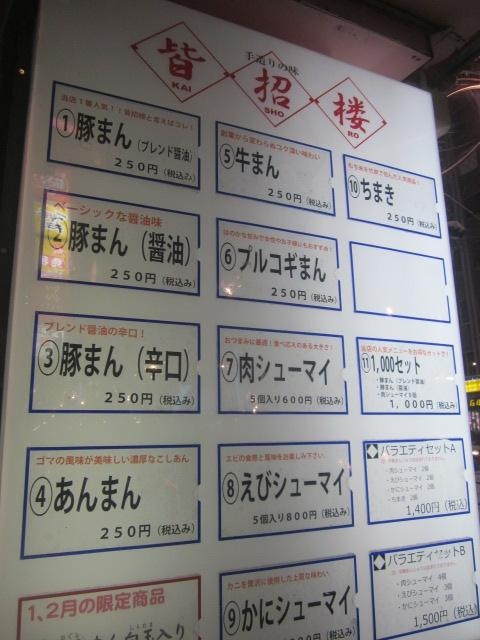 手造りの味
皆招楼
KAI SHO RO
当店1番人気!!皆招楼と言えばコレ!
①豚まん(ブレンド醤油)
250円(税込み)
ベーシックな醤油味
②豚まん(醤油)
250円(税込み)
ブレンド醤油の辛口!
③豚まん(辛口)
250円(税込み)
ゴマの風味が美味しい濃厚なこしあん
④あんまん
250円(税込み)
1,2月の限定商品
創業から変わらぬコク深い味わい
⑤牛まん
250円(税込み)
ほのかな甘みで女性やお子様にもおすすめ!
⑥プルコギまん
250円(税込み)
おつまみに最適!食べ応えのある大きさ!
⑦肉シューマイ
5個入り600円(税込み)
エビの食感と風味をお楽しみ下さい
⑧えびシューマイ
5個入り800円(税込み)
カニを贅沢に使用した上質な味わい
⑨かにシューマイ
もち米を竹皮で包んだ人気商品!
⑩ちまき
250円(税込み)
当店の人気メニューをお得なセットで!
⑪1,000セット
・豚まん(ブレンド醤油)
・豚まん(醤油)
・肉シューマイ5個
1,000円(税込み)
バラエティセットA
・肉シューマイ 2個
・えびシューマイ 2個
・かにシューマイ 2個
・ちまき 2個
1,400円(税込)
バラエティセットB
・肉シューマイ 4個
・えびシューマイ 3個
・かにシューマイ 3個
1,500円(税込)